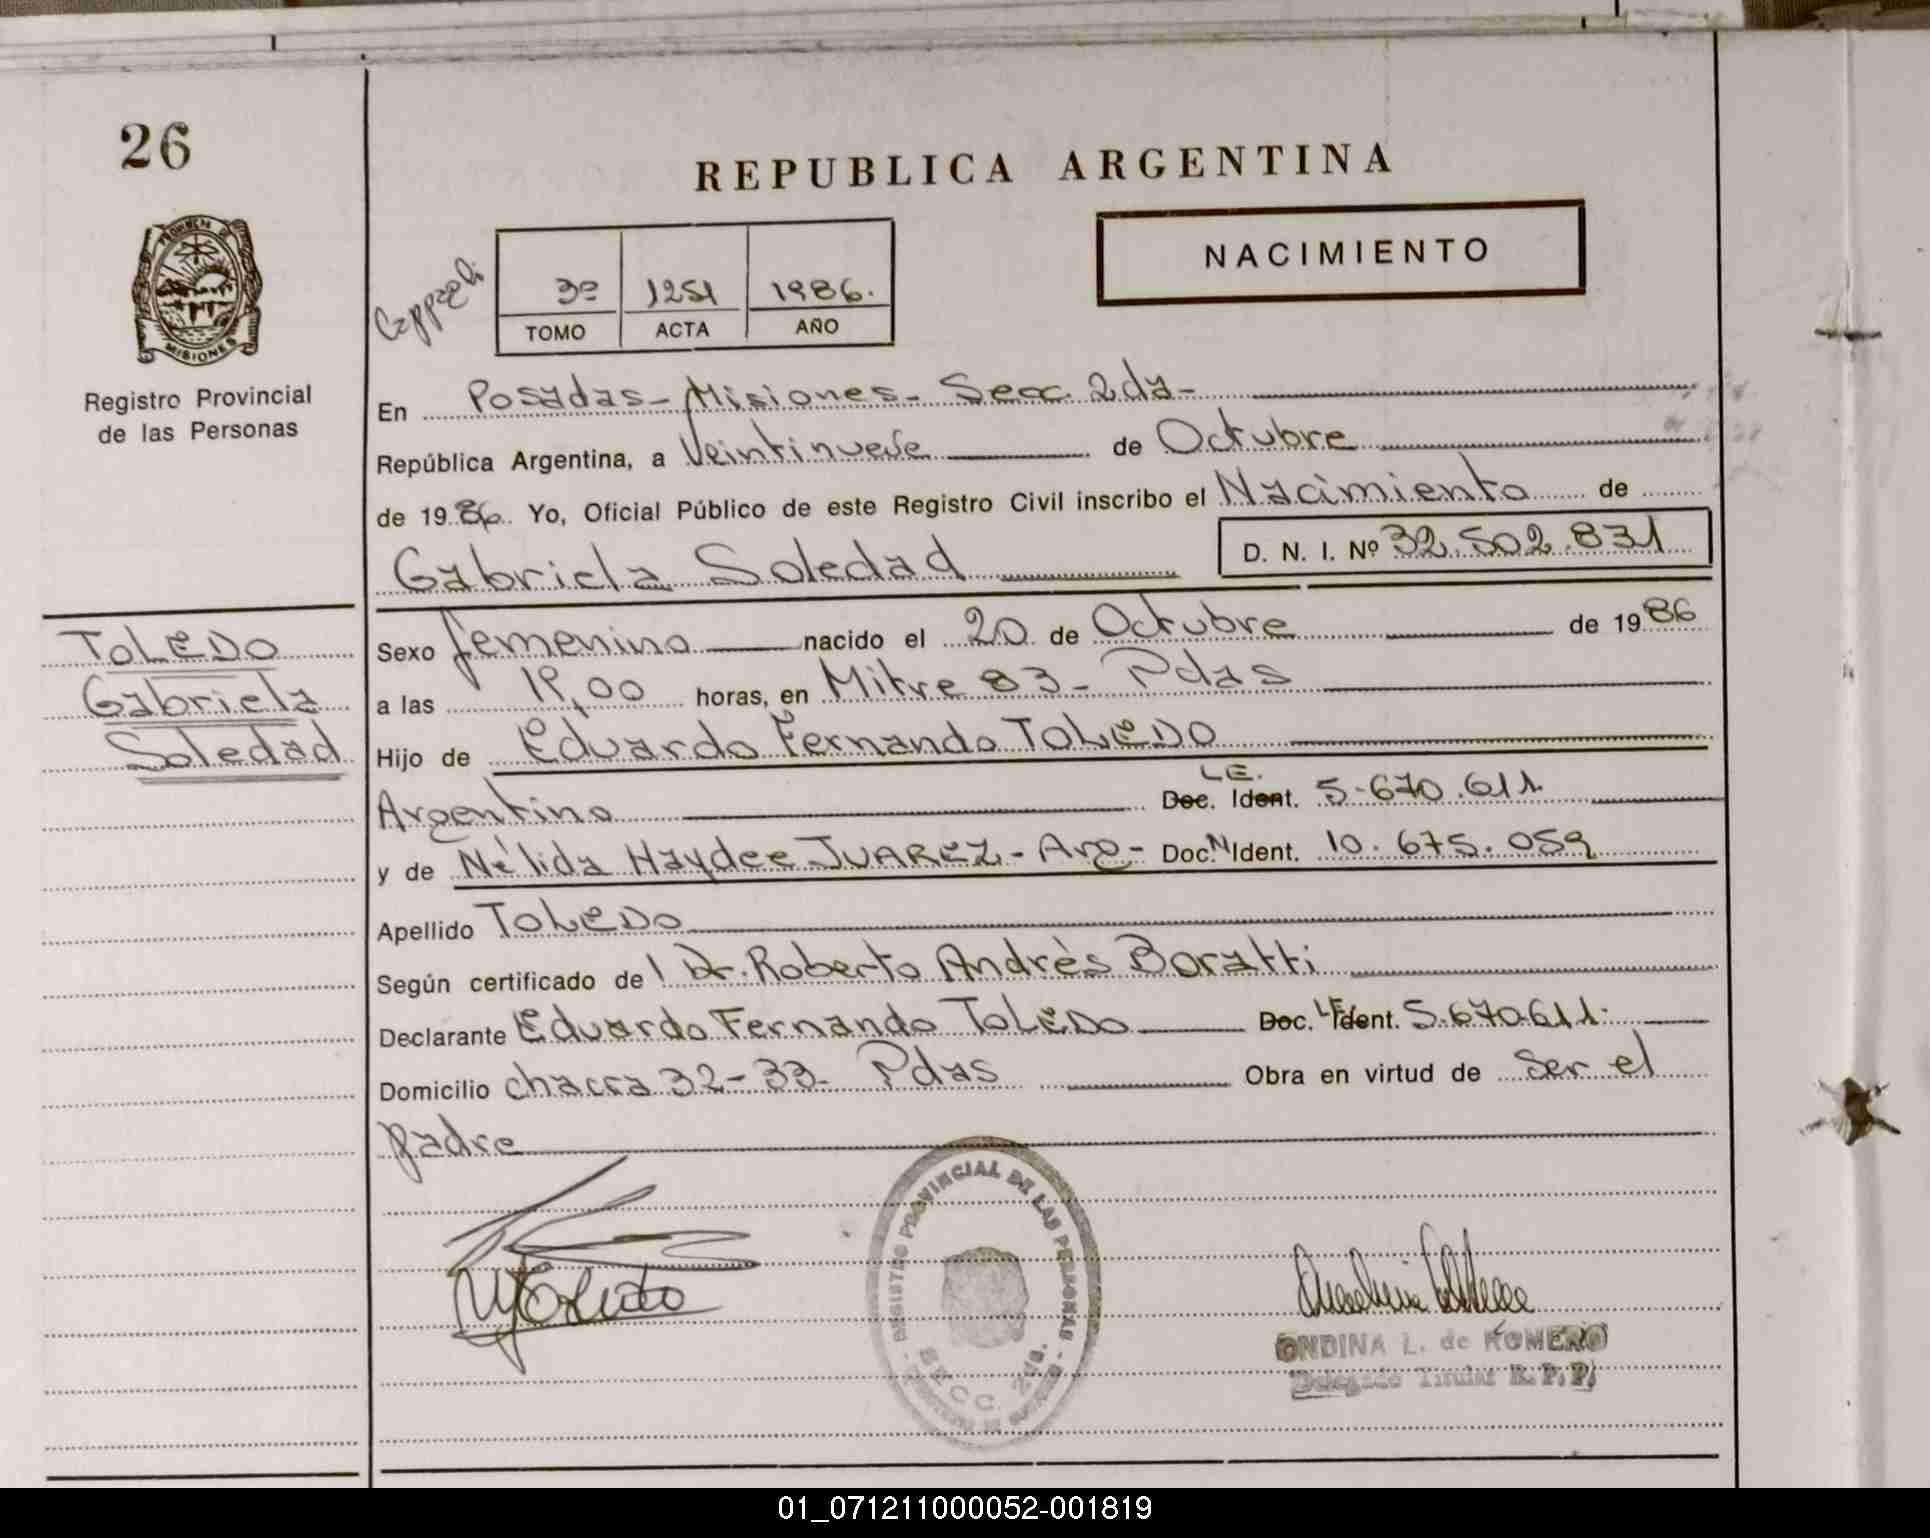 26
REPUBLICA ARGENTINA
NACIMIENTO
PROVINCIA DE
MISIONES
Registro Provincial
de las Personas
3º 1251 1986.
TOMO ACTA AÑO
En Posadas - Misiones - Secc. 2da -
República Argentina, a Veintinueve de Octubre
de 1986. Yo, Oficial Público de este Registro Civil inscribo el Nacimiento de
Gabriela Soledad D. N. I. Nº 32.502.831
TOLEDO
Gabriela
Soledad
Sexo femenino nacido el 20 de Octubre de 1986
a las 19,00 horas, en Mitre 83 - Pdas
Hijo de Eduardo Fernando TOLEDO
Argentino L.E. Doc. Ident. 5.670.611
y de Nélida Haydee JUAREZ - Arg - Doc. N Ident. 10.675.059
Apellido TOLEDO
Según certificado de l Dr. Roberto Andrés Boratti
Declarante Eduardo Fernando TOLEDO Doc. L.E. Ident. 5.670.611.
Domicilio chacra 32-33 - Pdas Obra en virtud de Ser el
padre
REGISTRO PROVINCIAL DE LAS PERSONAS
SECC. 2da.
ONDINA L. de ROMERO
Delegado Titular R. P. P.
01_071211000052-001819